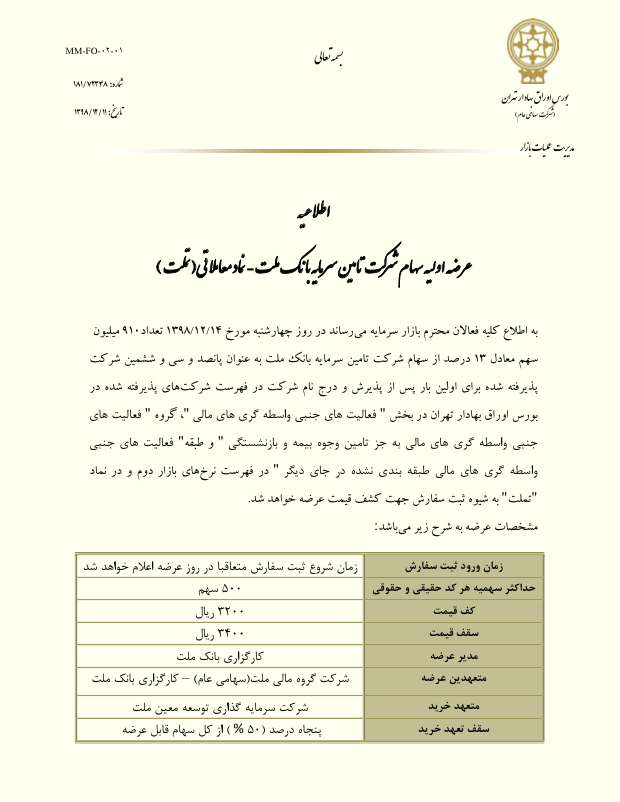 بسمه تعالی
MM-FO-۰۲-۰۱
شماره: ۱۸۱/۷۲۳۴۸
تاریخ: ۱۳۹۸/۱۲/۱۱
بورس اوراق بهادار تهران
(شرکت سهامی عام)
مدیریت عملیات بازار
اطلاعیه
عرضه اولیه سهام شرکت تامین سرمایه بانک ملت - نماد معاملاتی (تملت)
به اطلاع کلیه فعالان محترم بازار سرمایه می‌رساند در روز چهارشنبه مورخ ۱۳۹۸/۱۲/۱۴ تعداد ۹۱۰ میلیون
سهم معادل ۱۳ درصد از سهام شرکت تامین سرمایه بانک ملت به عنوان پانصد و سی و ششمین شرکت
پذیرفته شده برای اولین بار پس از پذیرش و درج نام شرکت در فهرست شرکت‌های پذیرفته شده در
بورس اوراق بهادار تهران در بخش " فعالیت های جنبی واسطه گری های مالی "، گروه " فعالیت های
جنبی واسطه گری های مالی به جز تامین وجوه بیمه و بازنشستگی " و طبقه" فعالیت های جنبی
واسطه گری های مالی طبقه بندی نشده در جای دیگر " در فهرست نرخ‌های بازار دوم و در نماد
"تملت" به شیوه ثبت سفارش جهت کشف قیمت عرضه خواهد شد.
مشخصات عرضه به شرح زیر می‌باشد:
زمان ورود ثبت سفارش زمان شروع ثبت سفارش متعاقبا در روز عرضه اعلام خواهد شد
حداکثر سهمیه هر کد حقیقی و حقوقی ۵۰۰ سهم
کف قیمت ۳۲۰۰ ریال
سقف قیمت ۳۴۰۰ ریال
مدیر عرضه کارگزاری بانک ملت
متعهدین عرضه شرکت گروه مالی ملت(سهامی عام) – کارگزاری بانک ملت
متعهد خرید شرکت سرمایه گذاری توسعه معین ملت
سقف تعهد خرید پنجاه درصد (۵۰ %) از کل سهام قابل عرضه